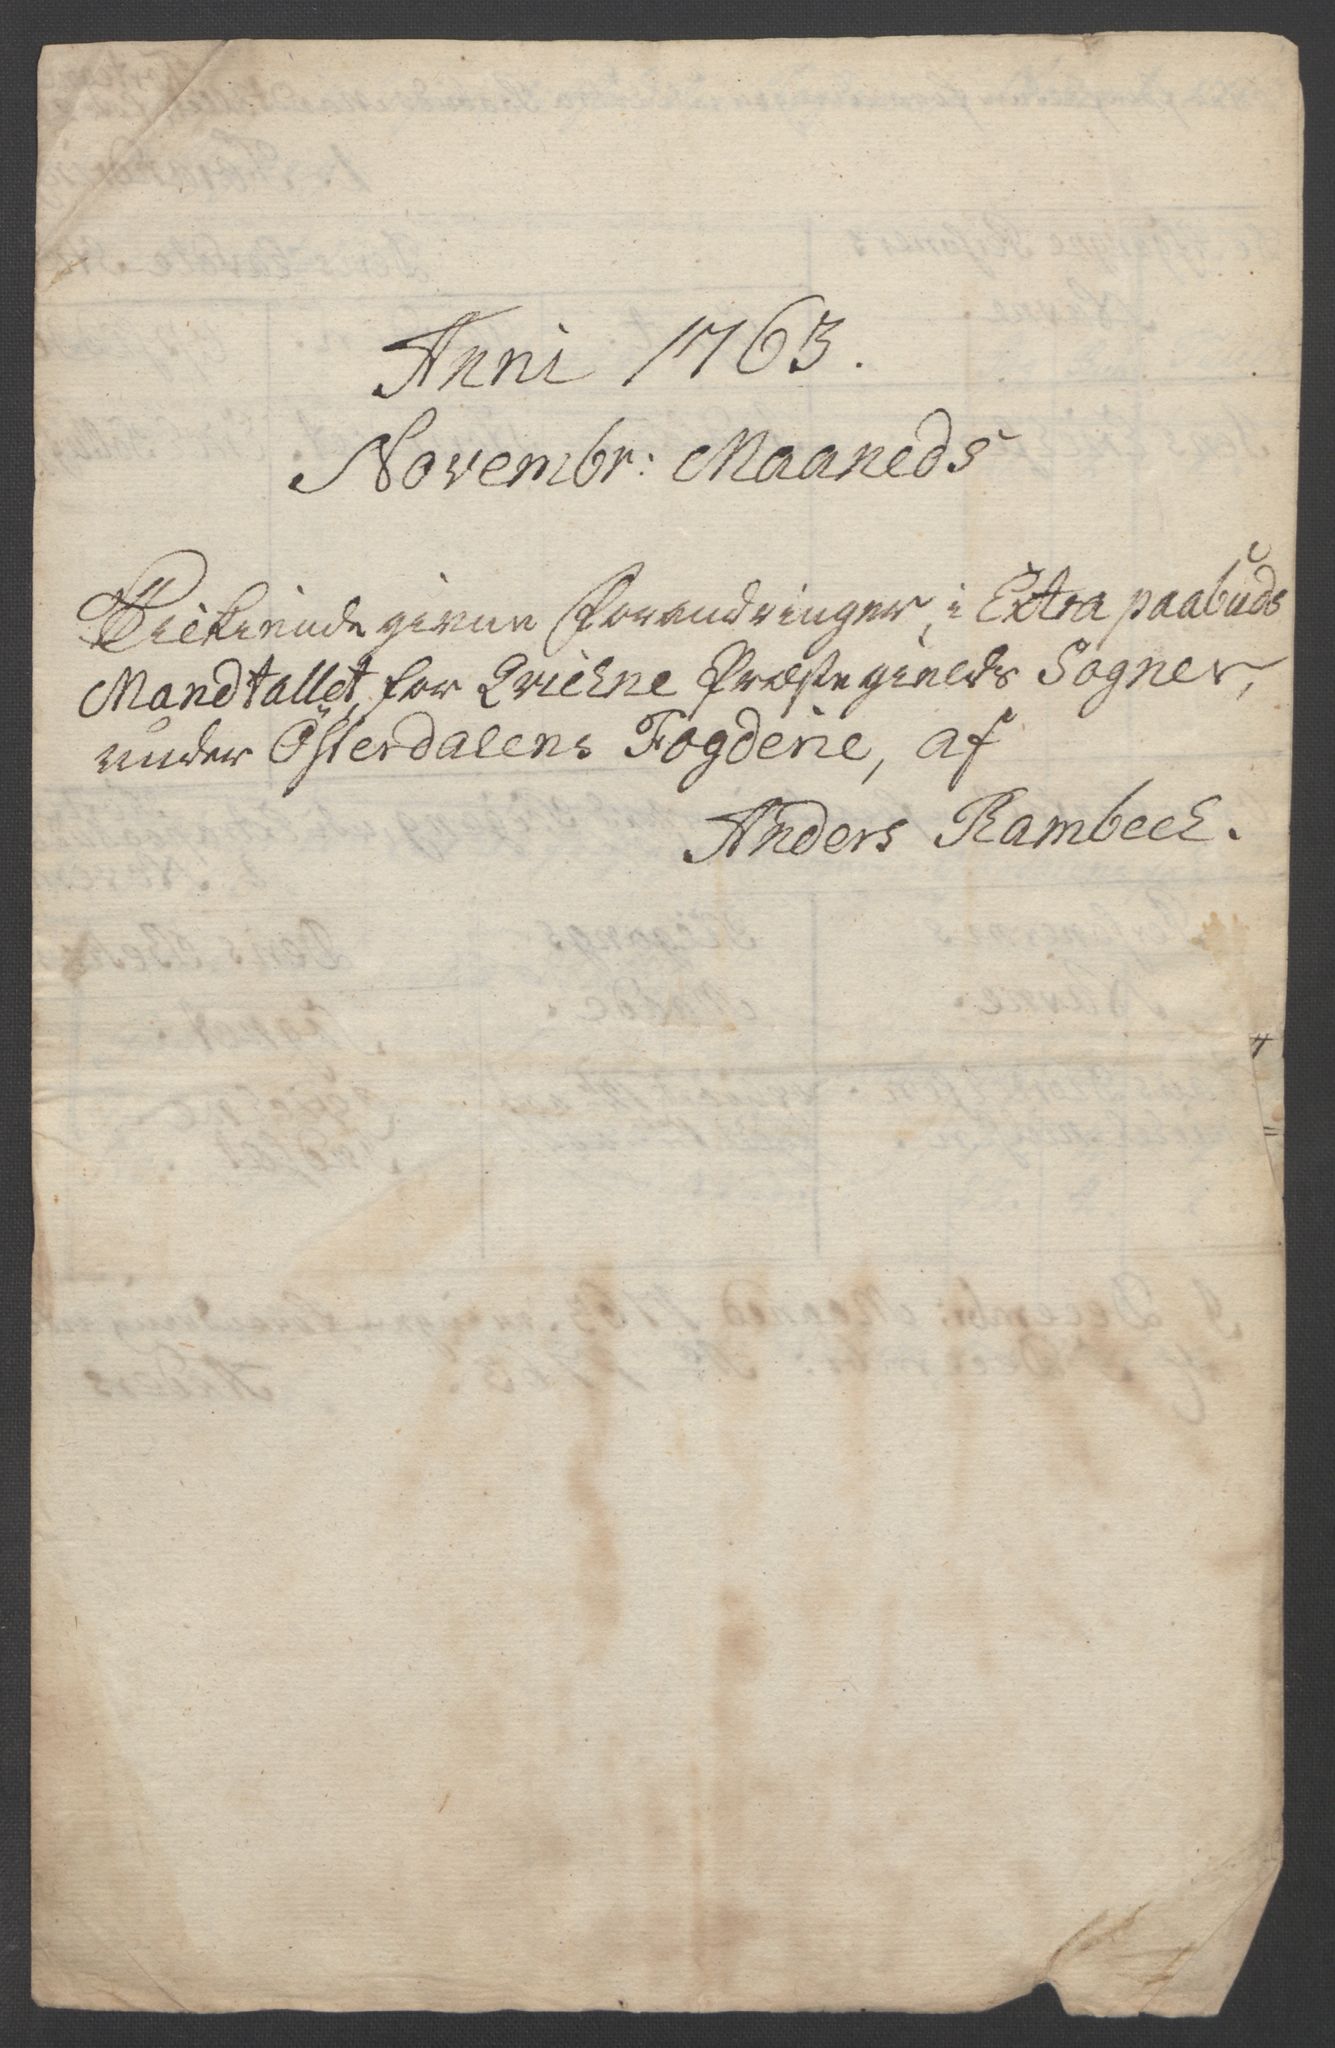 Anni 1763.
Novembr: Maaneds
Bekiendegivne Forandringer, i Extra paabuds
Mandtallet, for Qviekne Præstegields Sogner,
under Österdalens Fogderie, af
Anders Rambech.